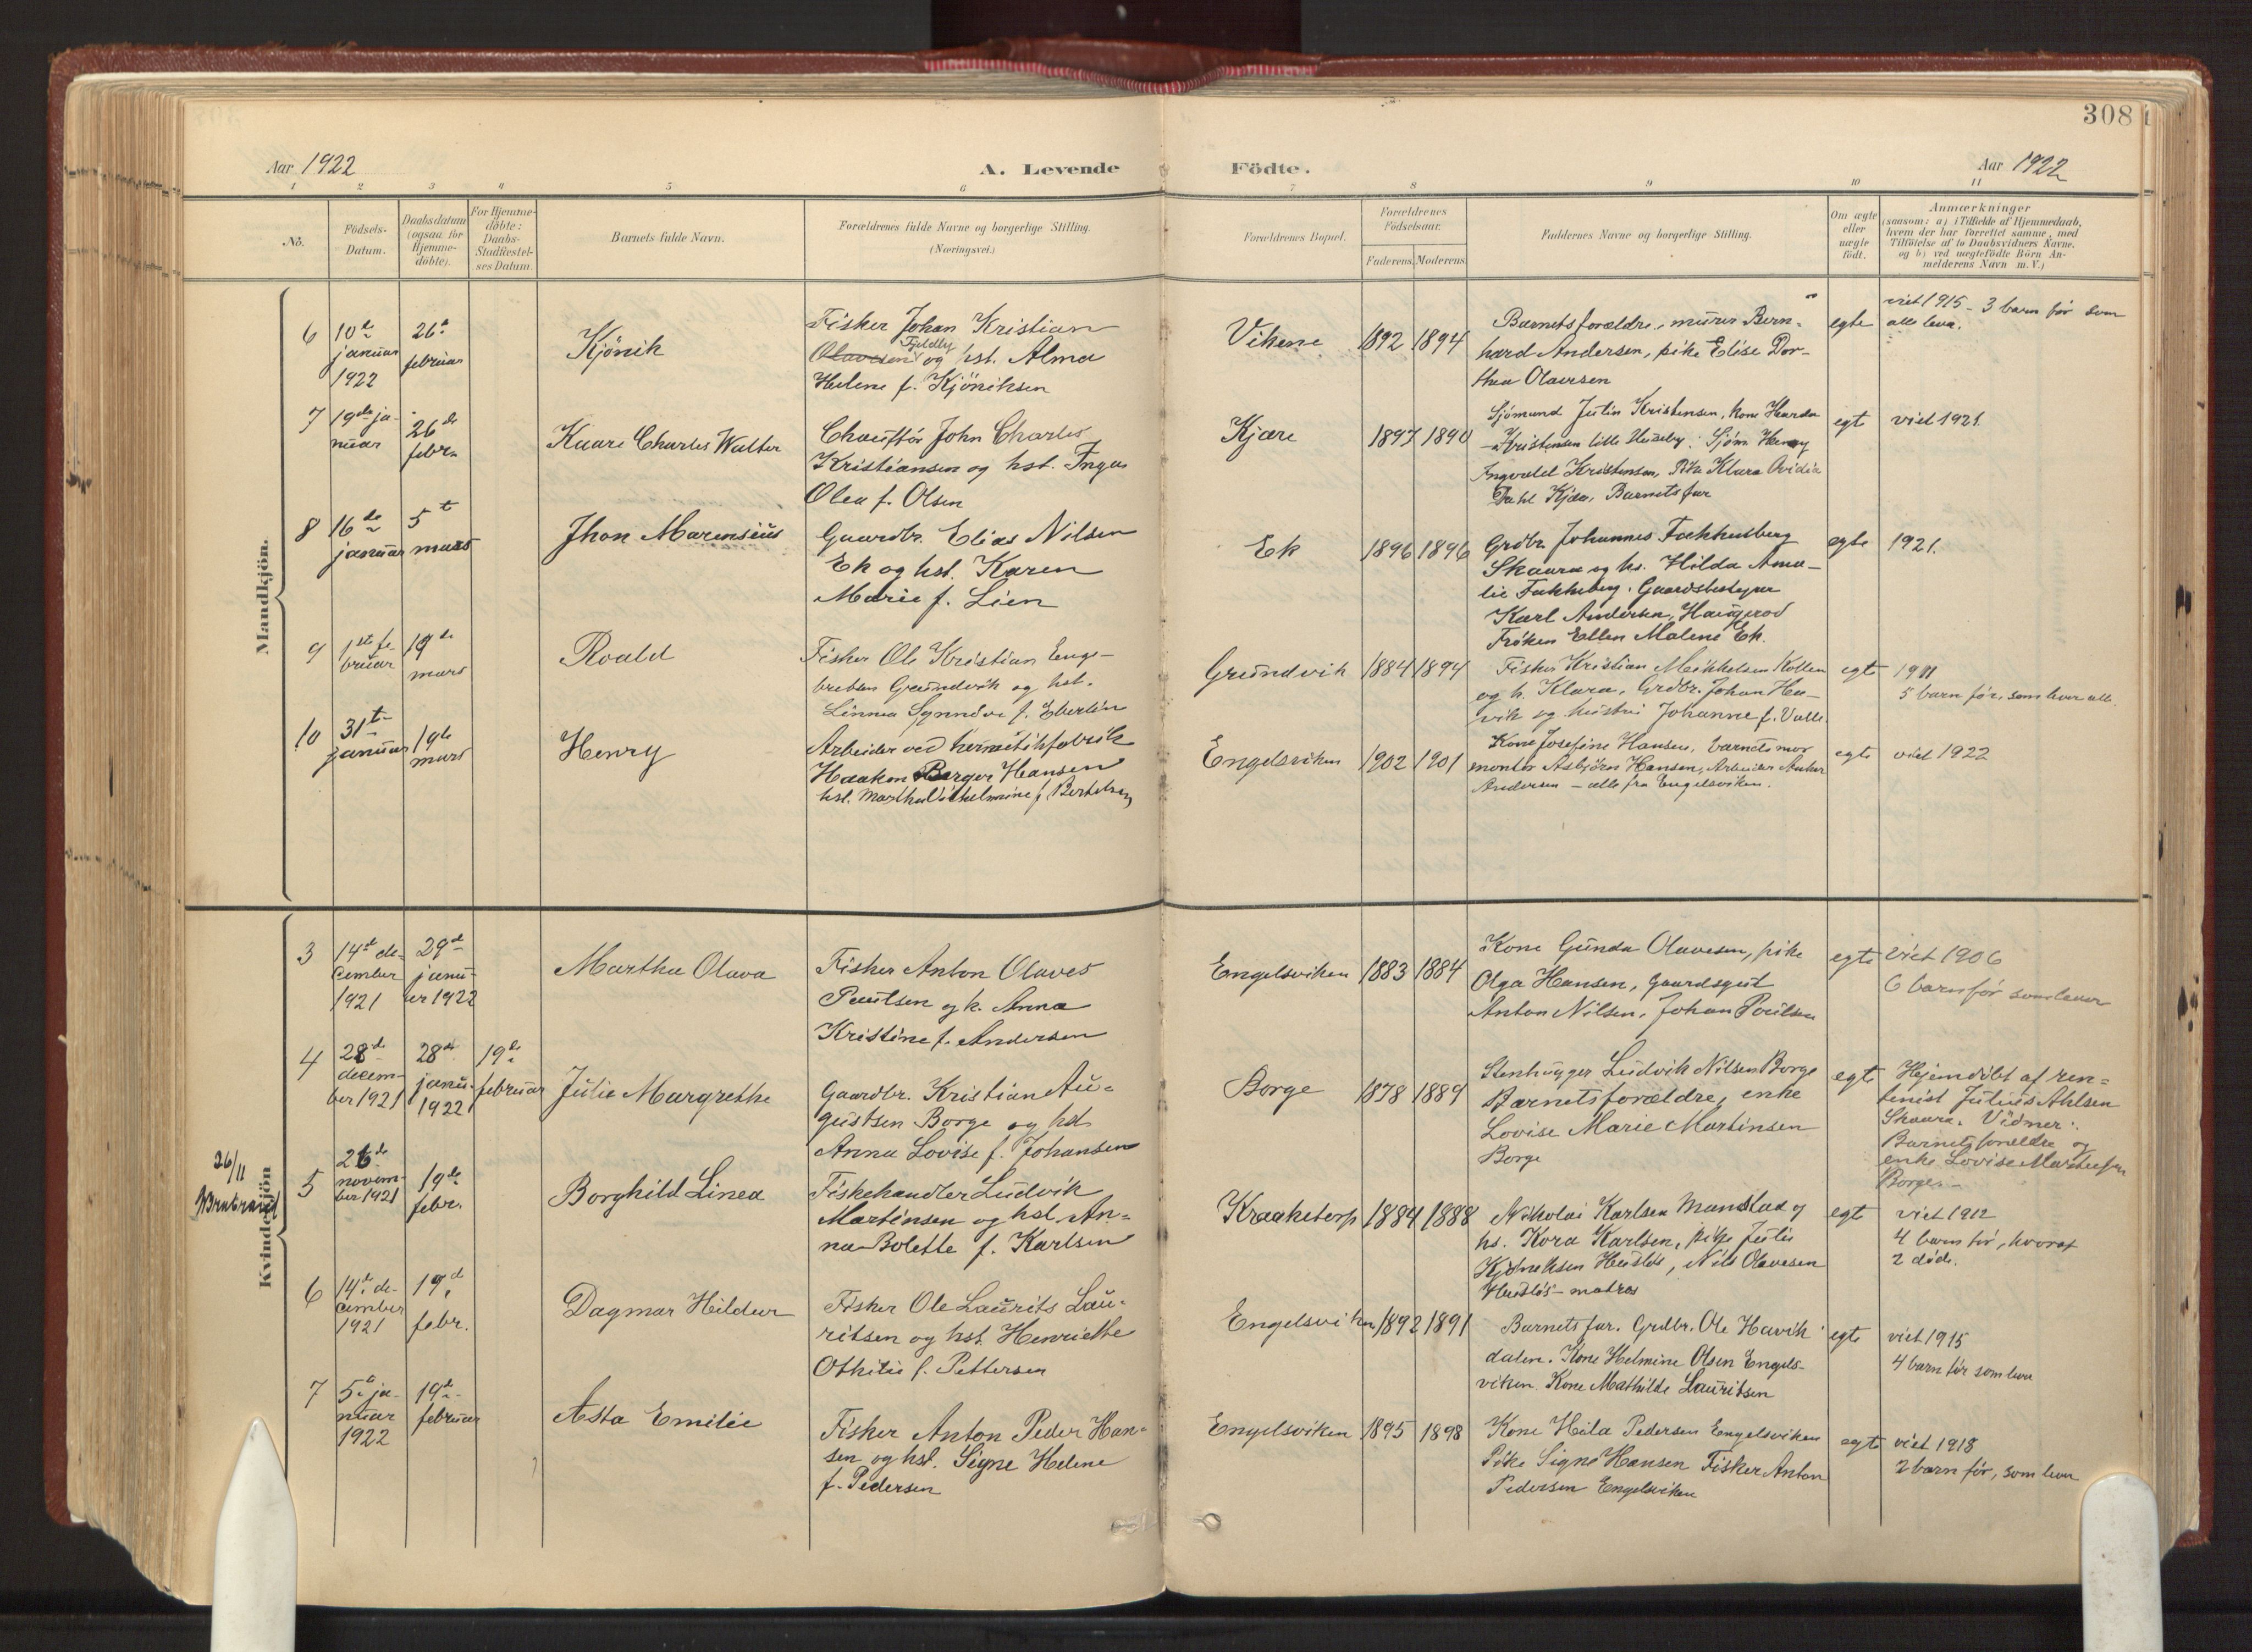 308
Aar 1922
A. Levende
Födte.
Aar 1922
1 2 3 4 5 6 7 8 9 10 11
No.
Födsels-
Datum.
Daabsdatum
(ogsaa for
Hjemme-
döbte).
For Hjemme-
döbte:
Daabs-
Stadfæstel-
ses Datum.
Barnets fulde Navn.
Forældrenes fulde Navne og borgerlige Stilling.
(Næringsvei.)
Forældrenes Bopæl.
Forældrenes
Födselsaar.
Faderens.
Moderens.
Faddernes Navne og borgerlige Stilling.
Om ægte
eller
uægte
födt.
Anmærkninger
(saasom: a) i Tilfælde af Hjemmedaab,
hvem der har forrettet samme, med
Tilföielse af to Daabsvidners Navne,
og b) ved uægtefödte Börn An-
melderens Navn m. V.)
Mandkjön.
6
10de
januar
1922
26de
februar
Kjönik
Fisker Johan Kristian
Fjeldby
Olavesen og hst. Alma
Helene f. Kjöniksen
Vikene
1892
1894
Barnets forældre, murer Bern-
hard Andersen, pike Elise Dor-
thea Olavsen
egte
viet 1915 - 3 barn før som
alle leva.
7
19de ja-
nuar
26de
febr.
Kaare Charles Walter
Chauffør John Charles
Kristiansen og hst. Inga
Olea f. Olsen
Kjære
1897
1890
Sjömand Julin Kristensen, kone Harda
Kristensen lille Huseby. Sjöm Henry
Ingvald Kristensen, Pike Klara Ovidia
Dahl Kjær, Barnets far
egt
viet 1921.
8
16de
januar
5t
mars
Jhon Marensius
Gaardbr. Elias Nilsen
Ek og hst. Karen
Marie f. Lien
Ek
1896
1896
Grdbr. Johannes Fakkusberg
Skaara og hs. Hilda Ama-
lie Gaardsbestyrer
Karl Andersen, Haugerod
Frøken Ellen Malene Ek.
egte
1921.
9
1ste fe-
bruar
19de
mars
Roald
Fisker Ole Kristian Enge-
bretsen Grundvik og hst.
Linnea Synnöve f. Eberlin
Grundvik
1884
1894
Fisker Kristian Mikkelsen Kollen
og h. Klara, Grdbr. Johan Ha-
vik og hustru Johanne f. Valle.
egt
1911
5 barn før, som lever alle.
10
31te
januar
19de
mars
Henry
Arbeider ved hermetikfabrik
Haakon Birger Hansen
hst. Martha Vilhelmine f. Bertelsen
Engelsviken
1902
1901
Kone Josefine Hansen, barnets mor
montør Asbjörn Hansen, Arbeider Anker
Andersen - alle fra Engelsviken.
egt
viet 1922
Kvindekjön
3
14de de-
cember
1921
29de
janu-
ar 1922
Martha Olava
Fisker Anton Olaves
Paulsen og k. Anna
Kristine f. Andersen
Engelsviken
1883
1884
Kone Gunda Olavesen, pike
Olga Hansen, gaardsgut
Anton Nilsen, Johan Poulsen
egte
viet 1906
6 barn før som lever
4
28de
decem-
ber 1921
28de
janu-
1922
19de
februar
Julie Margrethe
Gaardbr. Kristian Au-
gustsen Borge og hst
Anna Lovise f. Johansen
Borge
1878
1889
Stenhugger Ludvik Nilsen Borge
Barnets forældre, enke
Lovise Marie Martinsen
Borge
egte
Hjemdöbt af ren-
tenist Julius Ahlsen
Skaara. Vidner:
Barnets forældre og
enke Lovise Martinsen
Borge.
26/11
5
26de
novem-
ber 1921
19de
febr.
Borghild Linea
Fiskehandler Ludvik
Martinsen og hst. An-
na Bolette f. Karlsen
Kraaketorp
1884
1888
Nikolai Karlsen Manstad og
hs. Kora Karlsen, pike Julie
Kjöneksen Husløs, Nils Olavesen
Husløs - matros
egt
viet 1912
4 barn før, hvoraf
2 døde.
6
14de de-
cember
1921
19de
febr.
Dagmar Hildur
Fisker Ole Laurits Lau-
ritsen og hst. Henriette
Othilie f. Pettersen
Engelsviken
1892
1891
Barnets far. Grdbr. Ole Havik
dalen. Kone Helmine Olsen Engels-
viken. Kone Mathilde Lauritsen
egte
viet 1915
4 barn før som leve
7
5te ja-
nuar
1922
19de
februar
Asta Emilie
Fisker Anton Peder Han-
sen og hst. Signe Helene
f. Pedersen
Engelsviken
1895
1898
Kone Heila Pedersen Engelsviken
Pike Signe Hansen Fisker Anton
Pedersen Engelsviken
egte
viet 1918
2 barn før, som leve